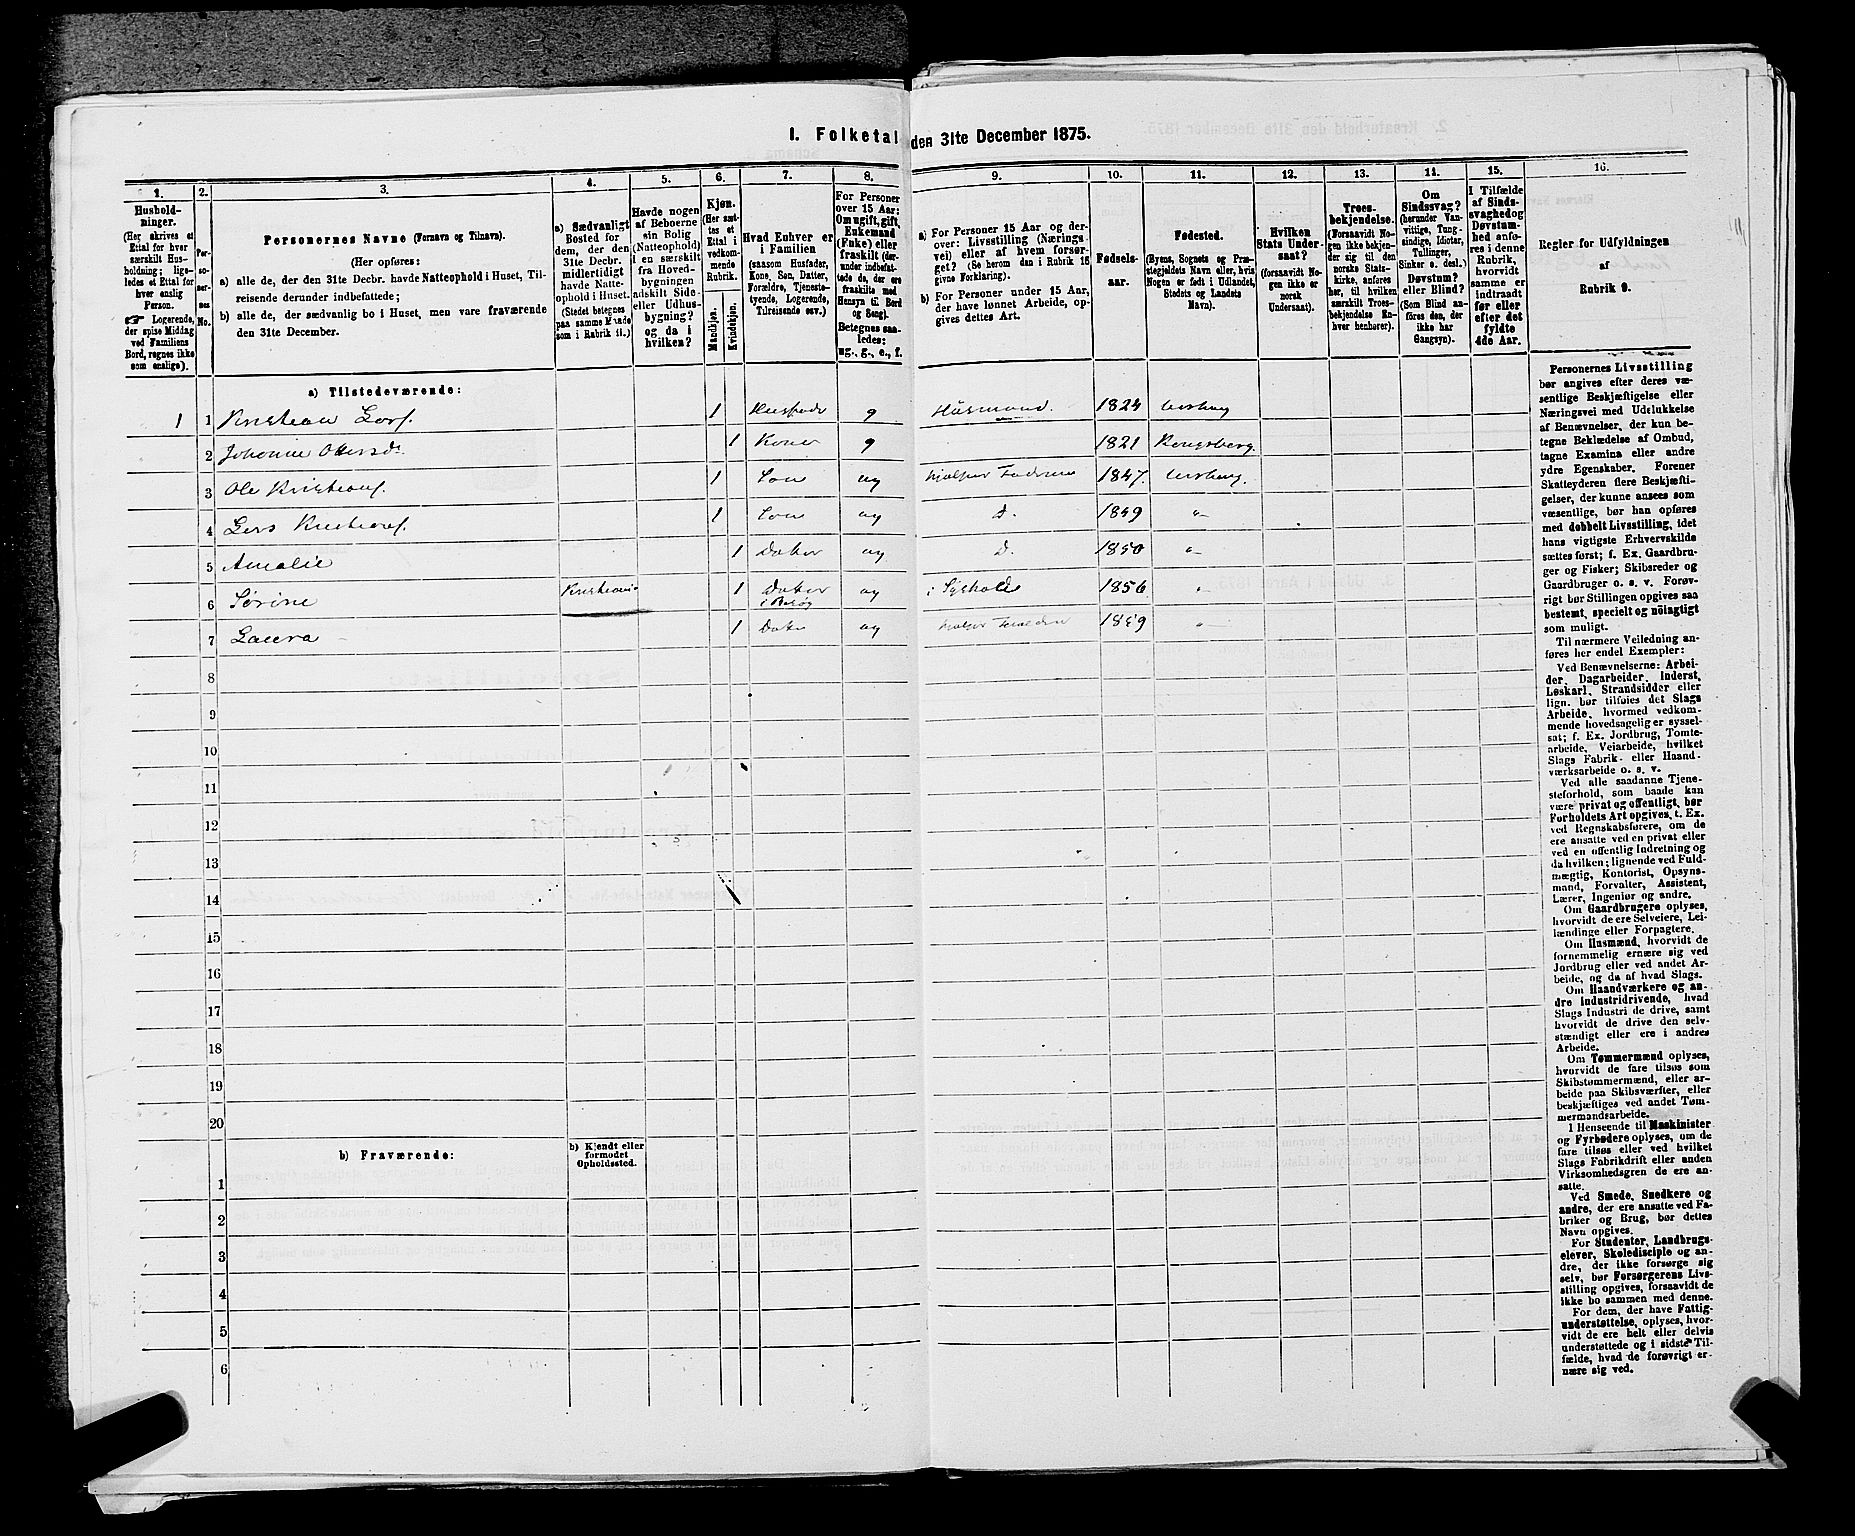 1. Folketal den 31te December 1875.
1. 2. 3. 4. 5. 6. 7. 8. 9. 10. 11. 12. 13. 14. 15. 16.
Hushold-
ninger.
(Her skrives et
Ettal for hver
særskilt Hus-
holdning; lige-
ledes et Ettal for
hver enslig
Person.
☞ Logerende,
der spise Middag
ved Familiens
Bord, regnes ikke
som enslige).
Per-
so-
ner-
nes
No.
Personernes Navne (Fornavn og Tilnavn).
(Her opføres:
a) alle de, der den 31te Decbr. havde Natteophold i Huset, Til-
reisende derunder indbefattede;
b) alle de, der sædvanlig bo i Huset, men vare fraværende
den 31te December.
a) Sædvanligt
Bosted for
dem, der den
31te Decbr.
midlertidigt
havde Natte-
ophold i Huset.
(Stedet betegnes
paa samme Maade
som i Rubrik 11.)
Havde nogen
af Beboerne
sin Bolig
(Natteophold)
i en særskilt
fra Hoved-
bygningen
adskilt Side-
eller Udhus-
bygning?
og da i
hvilken?
Kjøn.
(Her sæt-
tes et
Ettal i
vedkom-
mende
Rubrik.
Mandkjøn.
Kvindekjøn.
Hvad Enhver er
i Familien
(saasom Husfader,
Kone, Søn, Datter,
Forældre, Tjeneste-
tyende, Logerende,
Tilreisende osv.)
For Personer
over 15 Aar:
Om ugift, gift,
Enkemand
(Enke) eller
fraskilt (der-
under indbefat-
tede de, der ere
fraskilte med
Hensyn til Bord
og Seng).
Betegnes saa-
ledes:
ug., g., e., f.
a) For Personer 15 Aar og der-
over: Livsstilling (Nærings-
vei) eller af hvem forsør-
get? (Se herom dan i Rubrik 16
givne Forklaring).
b) For Personer under 15 Aar,
der have lønnet Arbeide, op-
gives dettes Art.
Fødsels-
aar.
Fødested.
(Byens, Sognets og Præ-
stegjeldets Navn eller, hvis
Nogen er født i Udlandet,
Stedets og Landets
Navn).
Hvilken
Stats Under-
saat?
(forsaavidt No-
gen ikke er
norsk
Undersaat).
Troes-
bekjendelse.
(Forsaavidt No-
gen ikke bekjen-
der sig til den
norske Stats-
kirke, anføres
her, til hvilken
særskilt Troes-
bekjendelse En-
hver henhører).
Om
Sindssvag?
(herunder Van-
vittige, Tung-
sindige, Idioter,
Tullinger,
Sinker o. desl.)
Døvstum?
eller Blind?
(Som Blind an-
føres den, der
ikke har
Gangsyn).
I Tilfælde
af Sinds-
svaghed og
Døvstum-
hed anfø-
res i denne
Rubrik,
hvorvidt
samme er
indtraadt
før eller
efter det
fyldte
4de Aar.
Regler for Udfyldningen
af
Rubrik 9.
a) Tilstedeværende:
1 1 Kristian Lars. 1 Husfader g Husmand. 1824
2 Johanne Olersd. 1 Kone g 1821 Kongsberg.
3 Ole Kristians. 1 Søn ug 1847.
4 Lars Kristians. 1 Søn ug D. 1849 "
5 Amalie 1 Datter ug D. 1850 "
6 Sørine 1 Datter i Besøg ug 1856 "
7 Laura 1 Dater ug "
8
9
10
11
12
13
14
15
16
17
18
19
20
b) Fraværende: b) Kjendt eller
formodet
Opholdssted.
1
2
3
4
5
6
Personernes Livsstilling
bør angives efter deres væ-
sentlige Beskjæftigelse eller
Næringsvei med Udelukkelse
af Benævnelser, der kun be-
tegne Beklædelse af Ombud,
tagne Examina eller andre
ydre Egenskaber. Forener
Skatteyderen flere Beskjæfti-
gelser, der kunne ansees som
væsentlige, bør han opføres
med dobbelt Livsstilling, idet
hans vigtigste Erhvervskilde
sættes først; f. Ex. Gaardbru-
ger og Fisker; Skibsreder og
Gaardbruger o. s. v. Forøv-
rigt bør Stillingen opgives saa
bestemt, specielt og nölagtigt
som muligt.
Til nærmere Veiledning an-
føres her endel Exempler:
Ved Benævnelserne: Arbei-
der, Dagarbeider, Inderst,
Løskarl, Strandsidder eller
lign. bør tilføies det Slags
Arbeide, hvormed vedkom-
mende hovedsagelig er syssel-
sat; f. Ex. Jordbrug, Tomte-
arbeide, Veiarbeide, hvilket
Slags Fabrik- eller Haand-
værksarbeide o. s. v.
Ved alle saadanne Tjene-
steforhold, som baade kan
være privat og offentligt, bør
Forholdets Art opgives, t. Ex.
ved Regnskabsførere, om de
ere ansatte ved en privat eller
ved en offentlig Indretning og
da hvilken; lignende ved Fuld-
mægtig, Kontorist, Opsyns-
mand, Forvalter, Assistent,
Lærer, Ingeniør og andre.
Om Gaardbrugere oplyses,
hvorvidt de ere Selveiere, Lei-
lændinge eller Forpagtere.
Om Husmænd, hvorvidt de
fornemmelig ernære sig ved
Jordbrug eller ved andet Ar-
beide, og da af hvad Slags.
Om Haandværkere og an-
dre Industridrivende, hvad
Slags Industri de drive, samt
hvorvidt de drive den selv-
stændigt eller ere i andres
Arbeide.
Om Tømmermænd oplyses,
hvorvidt de fare tilsøs som
Skibstømmermænd, eller ar-
beide paa Skibsværfter, eller
beskjæftiges ved andet Tøm-
mermandsarbeide.
I Henseende til Maskinister
og Fyrbødere oplyses, om de
fare tilsøs eller ved hvilket
Slags Fabrikdrift eller anden
Virksomhedsgren de ere an-
satte.
Ved Smede, Snedkere og
andre, der ere ansatte ved Fa-
briker og Brug, bør dettes
Navn opgives.
For Studenter, Landbrugs-
elever, Skoledisciple og an-
dre, der ikke forsørge sig
selv, bør Forsørgerens Livs-
stilling opgives, forsaavidt de
ikke bo sammen med denne.
For dem, der have Fattig-
understøttelse, oplyses, hvor-
vidt de ere helt eller delvis
understøttede og i sidste Til-
fælde, hvad de forøvrigt er-
nære sig ved.